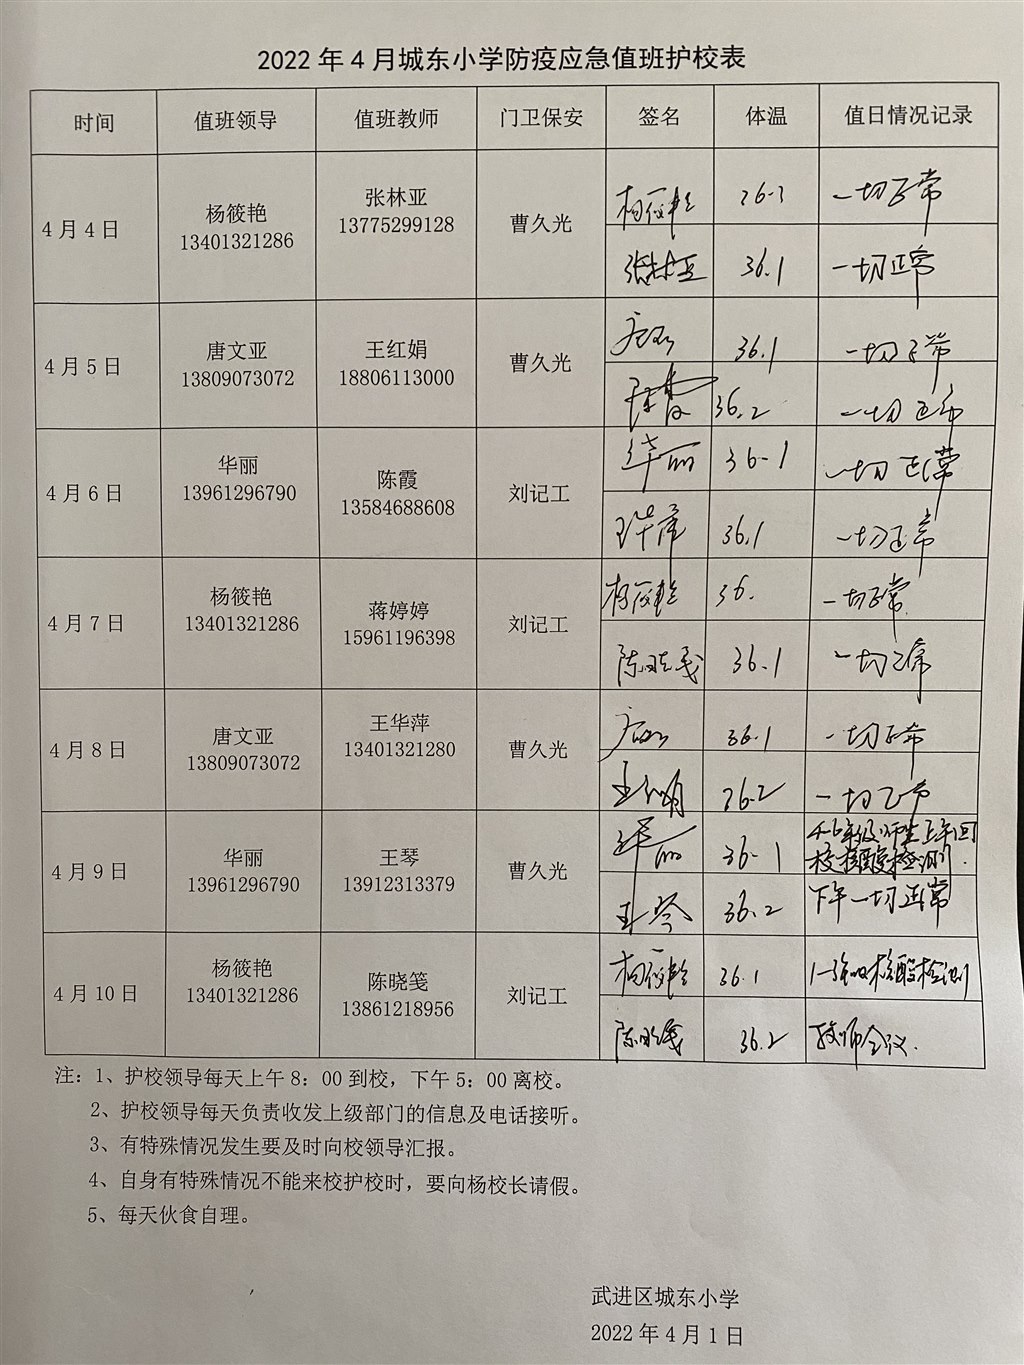 2022年4月城东小学防疫应急值班护校表
时间 值班领导 值班教师 门卫保安 签名 体温 值日情况记录
4月4日 杨筱艳 13401321286 张林亚 13775299128 曹久光 杨筱艳 36.3 一切正常
张林亚 36.1 一切正常
4月5日 唐文亚 13809073072 王红娟 18806113000 曹久光 36.1 一切正常
陈霞 36.2 一切正常
4月6日 华丽 13961296790 陈霞 13584688608 刘记工 华丽 36.1 一切正常
王华萍 36.1 一切正常
4月7日 杨筱艳 13401321286 蒋婷婷 15961196398 刘记工 杨筱艳 36. 一切正常
陈晓笺 36.1 一切正常
4月8日 唐文亚 13809073072 王华萍 13401321280 曹久光 36.1 一切正常
王红娟 36.2 一切正常
4月9日 华丽 13961296790 王琴 13912313379 曹久光 华丽 36.1 4-6年级师生上午回
校核酸检测.
王琴 36.2 下午一切正常
4月10日 杨筱艳 13401321286 陈晓笺 13861218956 刘记工 杨筱艳 36.1 核酸检测
陈晓笺 36.2 教师会议.
注：1、护校领导每天上午8：00到校，下午5：00离校。
2、护校领导每天负责收发上级部门的信息及电话接听。
3、有特殊情况发生要及时向校领导汇报。
4、自身有特殊情况不能来校护校时，要向杨校长请假。
5、每天伙食自理。
武进区城东小学
2022年4月1日